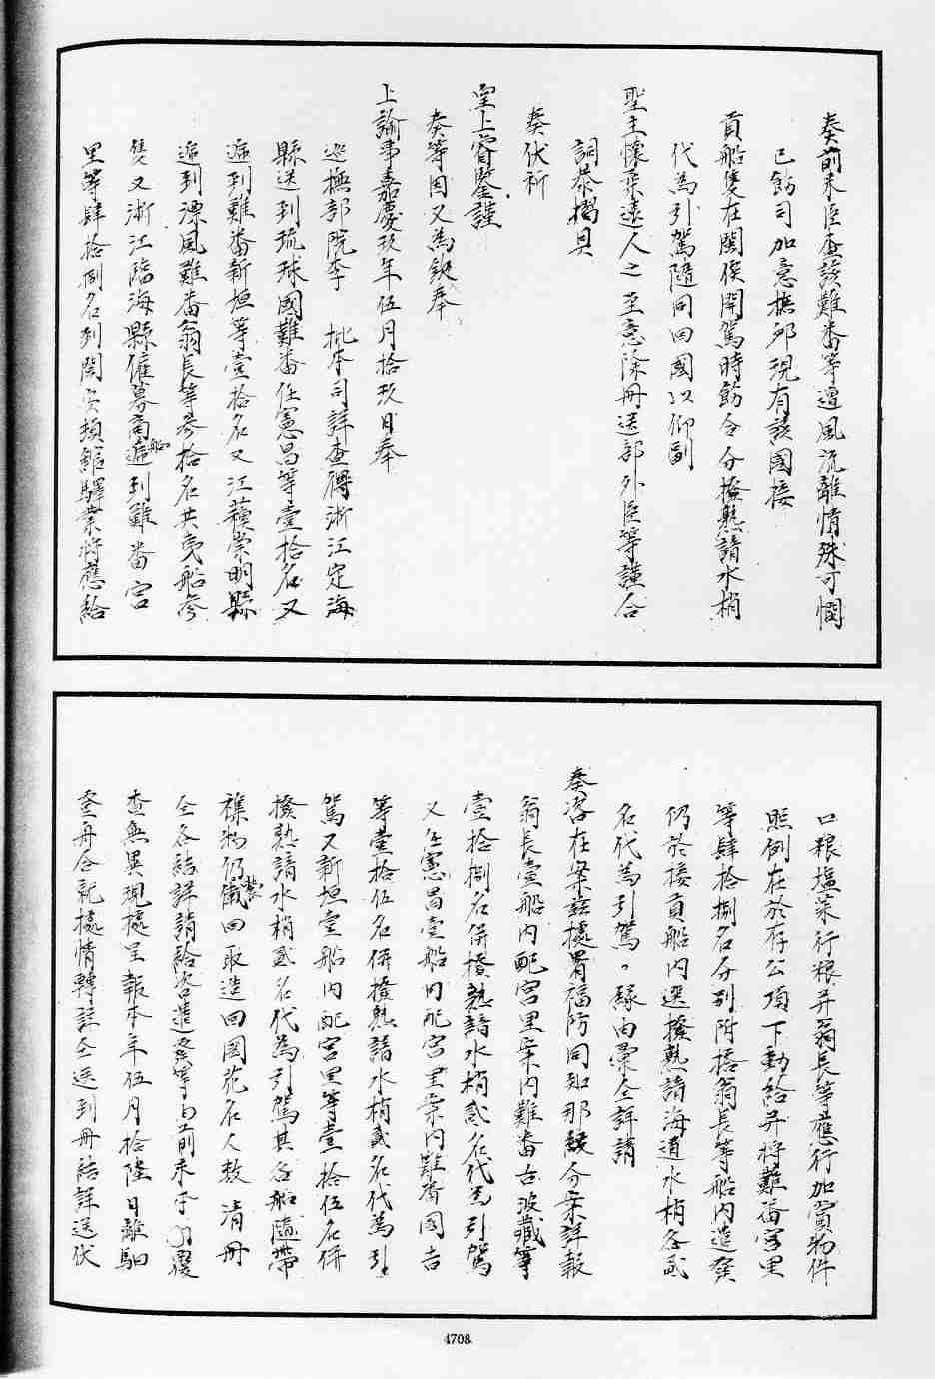 奏前來臣查該難番等遭風流離情殊可憫
已飭司加意撫卹現有該國接
貢船隻在閩俟開駕時飭令分撥熟諳水梢
代為引駕隨同回國以仰副
聖主懷柔遠人之至意除冊送部外臣等謹合
詞恭摺具
奏伏祈
皇上睿鑒謹
奏等因又為欽奉
上諭事嘉慶玖年伍月拾玖日奉
巡撫部院李 批本司詳查得浙江定海
縣送到琉球國難番任憲昌等壹拾名又
遞到難番新垣等壹拾名又江蘇崇明縣
遞到漂風難番翁長等叁拾名共夷船叁
隻又浙江臨海縣僱募商船遞到難番宮
里等肆拾捌名到閩安頓館驛業將應給
口糧塩菜行粮并翁長等應行加賞物件
照例在於存公項下動給并將難番宮里
等肆拾捌名分列附搭翁長等船內遣發
仍於接貢船內選撥熟諳海道水梢各貳
名代為引駕。緣由彙仝詳請
奏咨在案茲據署福防同知那 分案詳報
翁長壹船內配宮里案內難番古波藏等
壹拾捌名併撥熟諳水梢貳名代為引駕
又任憲昌壹船內配宮里案內難番國吉
等壹拾伍名併撥熟諳水梢貳名代為引
駕又新垣壹船內配宮里等壹拾伍名併
撥熟諳水梢貳名代為引駕其各船隨帶
襍物仍儎回取造回國花名人数清冊
仝各結詳請給咨遣發等由前來 覆
查無異現據呈報本年伍月拾陸日離駉
登舟合就據情轉詳仝送到冊結詳送伏
4708